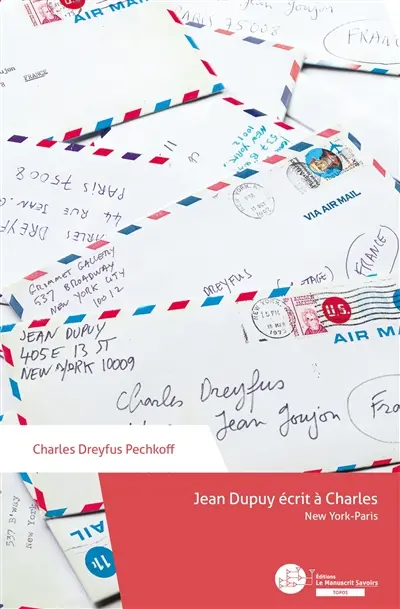 Jean Joujon
PARIS 75008
AIR MAIL
FRANCE
FRANCE
U.S.
AIR MAIL
NEW YORK
10012
PARIS 75008
44 RUE JEAN
VIA AIR MAIL
GROMMET GALLERY
537 BROADWAY
NEW YORK CITY
10012
DREYFUS
FRANCE
JEAN DUPUY
405 E 13 ST
NEW YORK 10009
U.S.
AIR MAIL
Charles Dreyfus
Jean Joujon
Charles Dreyfus Pechkoff
537 B'way
New York
AIR MAIL
11c
Jean Dupuy écrit à Charles
New York-Paris
Éditions
Le Manuscrit Savoirs
TOPOS